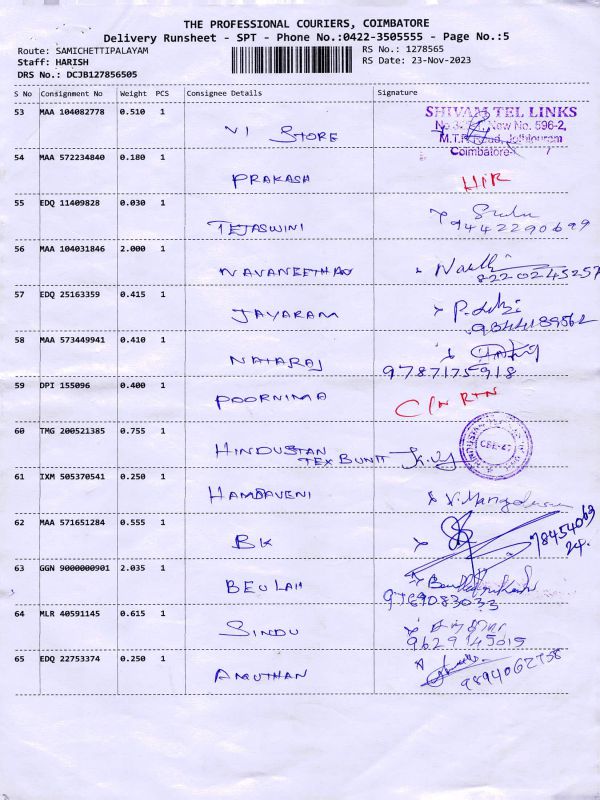 THE PROFESSIONAL COURIERS, COIMBATORE
Delivery Runsheet - SPT - Phone No.:0422-3505555 - Page No.:5
Route: SAMICHETTIPALAYAM
RS No.: 1278565
Staff: HARISH
RS Date: 23-Nov-2023
DRS No.: DCJB127856505
S No Consignment No Weight PCS Consignee Details Signature
53 MAA 104082778 0.510 1
VI STORE
SHIVAM TEL LINKS
New No. 596-2,
M.T.P. Road, Jothipuram
Coimbatore-
54 MAA 572234840 0.180 1
PRAKASH
55 EDQ 11409828 0.030 1
TEJASWINI
9442290699
56 MAA 104031846 2.000 1
NAVANEETHAN
8220245257
57 EDQ 25163359 0.415 1
JAYARAM
58 MAA 573449941 0.410 1
NATARAJ
9787175918
59 DPI 155096 0.400 1
POORNIMA
C/N RTN
60 TMG 200521385 0.755 1
HINDUSTAN
TEX BUNIT
61 IXM 505370541 0.250 1
62 MAA 571651284 0.555 1
BK
63 GGN 9000000901 2.035 1
BEULAH
64 MLR 40591145 0.615 1
SINDU
9629145015
65 EDQ 22753374 0.250 1
AMUTHAN
9894062758